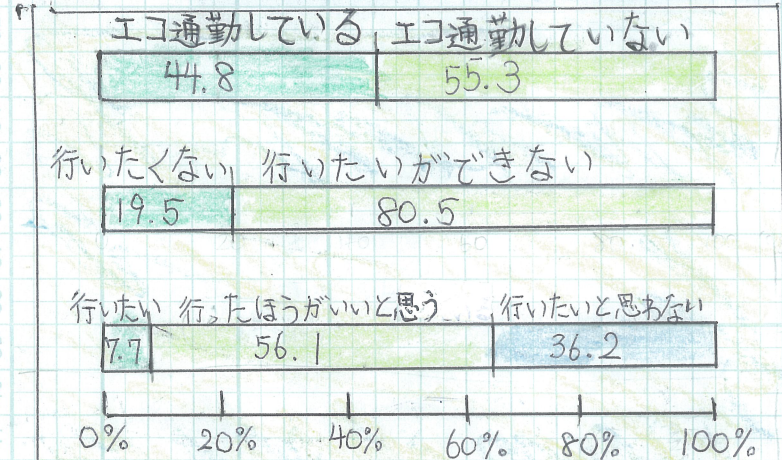 エコ通勤している エコ通勤していない
44.8 55.3
行いたくない 行いたいができない
19.5 80.5
行いたい 行ったほうがいいと思う 行いたいと思わない
7.7 56.1 36.2
0% 20% 40% 60% 80% 100%